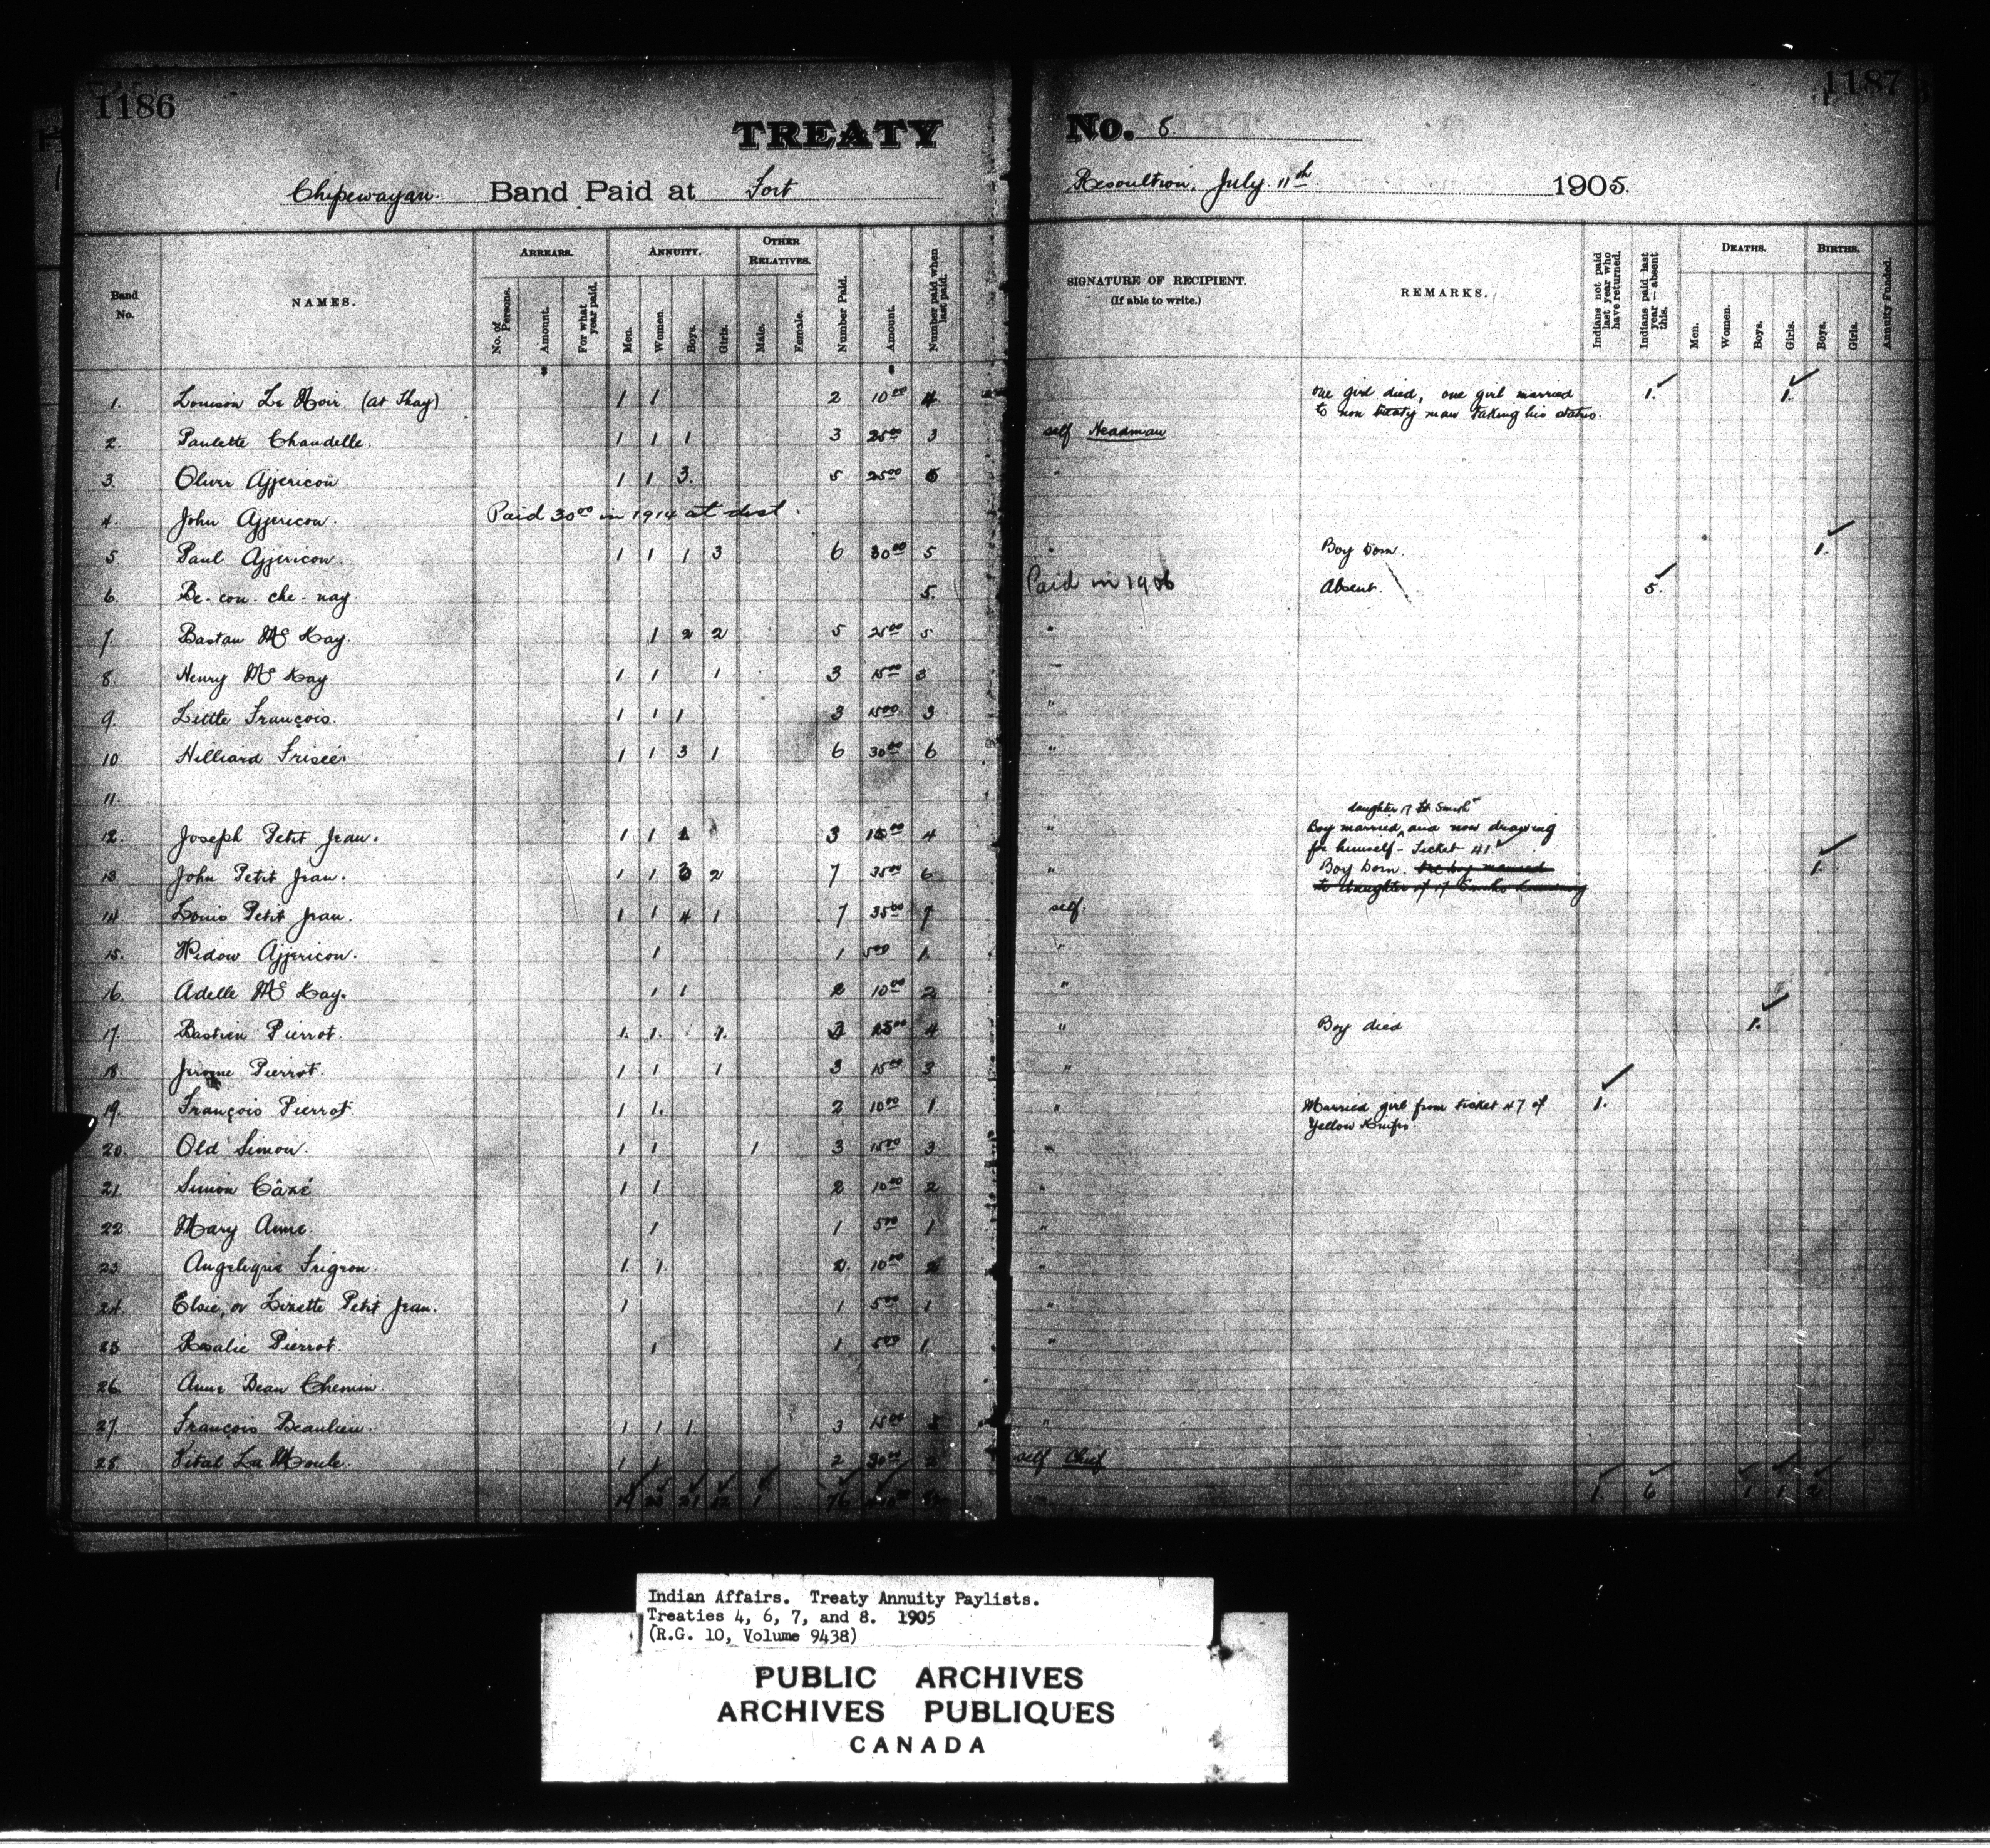 1186
1187
TREATY No. 8
Chipewayan. Band Paid at Fort Resolution, July 11th 1905.
Band No.
NAMES.
ARREARS.
No. of Persons.
Amount.
For what year paid.
ANNUITY.
Men.
Women.
Boys.
Girls.
OTHER RELATIVES.
Male.
Female.
Number Paid.
Amount.
Number paid when last paid.
SIGNATURE OF RECIPIENT.
(If able to write.)
REMARKS.
Indians not paid last year who have returned.
Indians paid last year — absent this.
DEATHS.
Men.
Women.
Boys.
Girls.
BIRTHS.
Boys.
Girls.
Annuity Funded.
1. Louison Le Noir (at Hay) 1 1 2 10.00 4 One girl died, one girl married 1. 1.
to non treaty man taking his status.
2. Paulette Chandelle. 1 1 1 3 25.00 3 self Headman
3. Oliver Ajjericon 1 1 3. 5 25.00 5 "
4. John Ajjericon. Paid 30.00 in 1914 at dist.
5 Paul Ajjericon. 1 1 1 3 6 30.00 5 " Boy born. 1.
6. Be-con-che-nay. 5. Paid in 1906 Absent. 5.
7 Bastan Mc Kay. 1 2 2 5 25.00 5 "
8. Henry Mc Kay 1 1 1 3 15.00 3
9. Little François. 1 1 1 3 15.00 3 "
10 Hilliard Frisée. 1 1 3 1 6 30.00 6 "
11.
daughter 17 Ft Smith
12. Joseph Petit Jean. 1 1 1 3 15.00 4 " Boy married, and now drawing
for himself - Ticket 41.
13. John Petit Jean. 1 1 3 2 7 35.00 6 " Boy born. 1.
14. Louis Petit Jean. 1 1 4 1 7 35.00 7 self.
15. Widow Ajjericon. 1 1 5.00 1. "
16. Adelle Mc Kay. 1 1 2 10.00 2 "
17. Bastien Pierrot. 1. 1. 1. 3 15.00 4 " Boy died 1.
18. Jerome Pierrot. 1 1 1 3 15.00 3 "
19. François Pierrot. 1 1. 2 10.00 1 " Married girl from ticket 47 of 1.
Yellow Knifes.
20. Old Simon. 1 1 1 3 15.00 3 "
21. Simon Câzé 1 1 2 10.00 2 "
22. Mary Anne. 1 1 5.00 1 "
23. Angelique Frigron. 1. 1. 2. 10.00 2 "
24. Elsie, or Lizette Petit Jean. 1 1 5.00 1 "
25 Rosalie Pierrot. 1 1 5.00 1. "
26. Anne Beau Chemin.
27. François Beaulieu. 1 1 1 3 15.00 3 "
28. Vital La Moule. 1 1 2 30.00 2 self Chief
19 23 21 12 1 76 1. 6 1 1 2
Indian Affairs. Treaty Annuity Paylists.
Treaties 4, 6, 7, and 8. 1905
(R.G. 10, Volume 9438)
PUBLIC ARCHIVES
ARCHIVES PUBLIQUES
CANADA